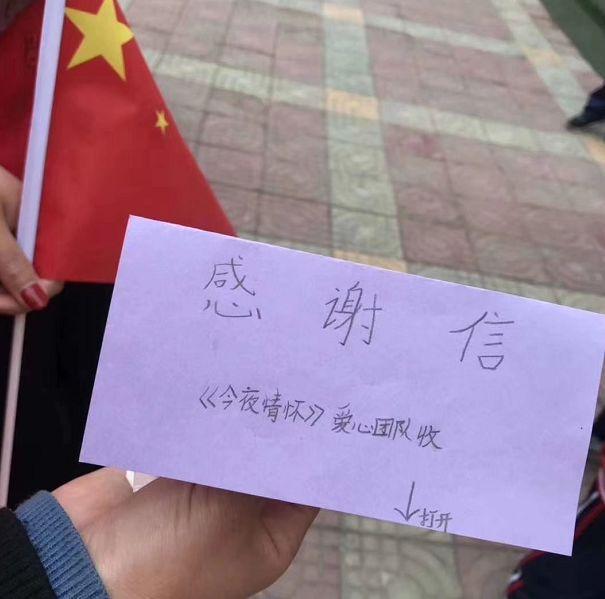 感谢信
《今夜情怀》爱心团队收
↓打开